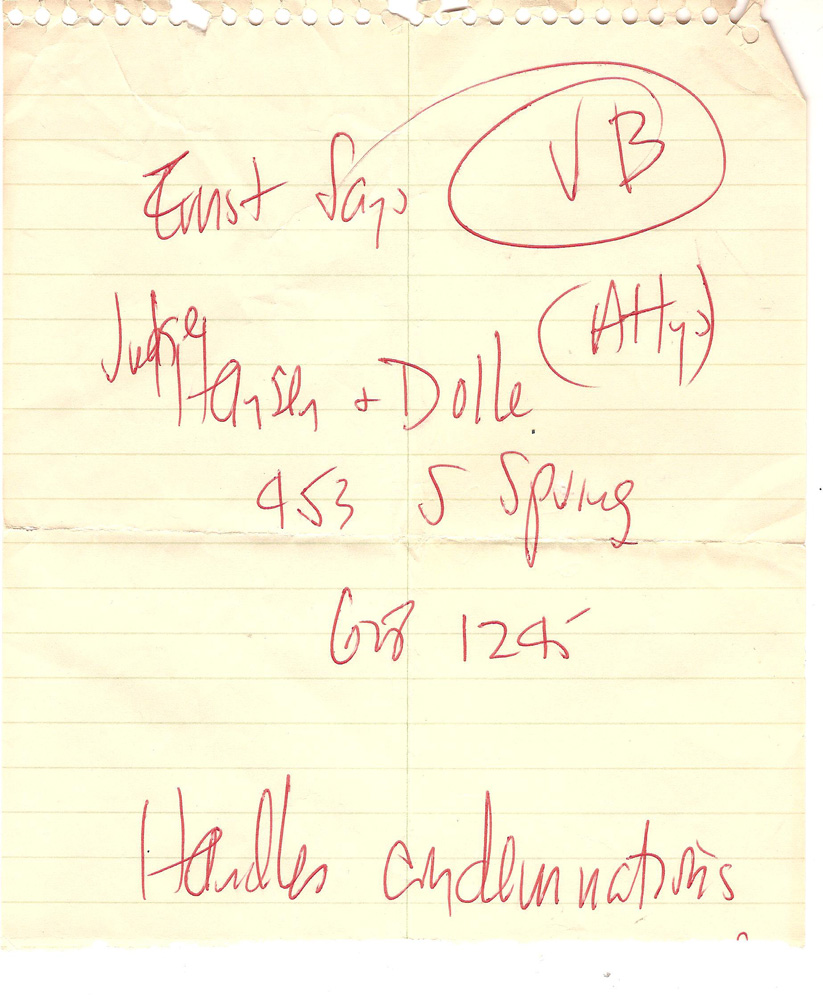 Ernst Says VB
Judge (Attys)
Hansen + Dolle
453 S Spring
628 1245
Handles condemnations